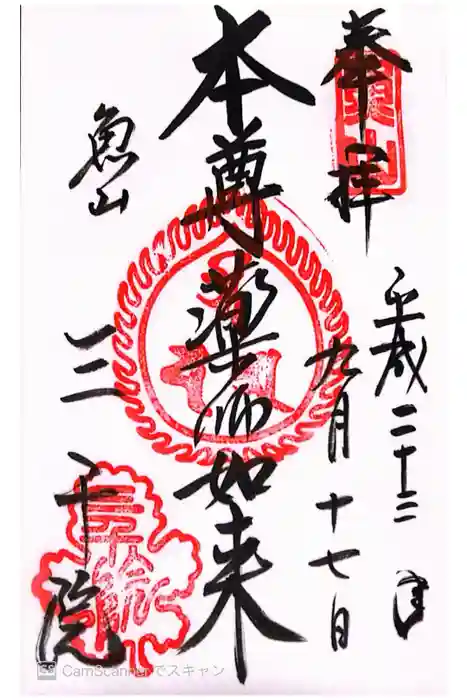 奉拝
平成二十三年
九月十七日
本尊薬師如来
魚山
三千院
三千院
CS CamScannerでスキャン